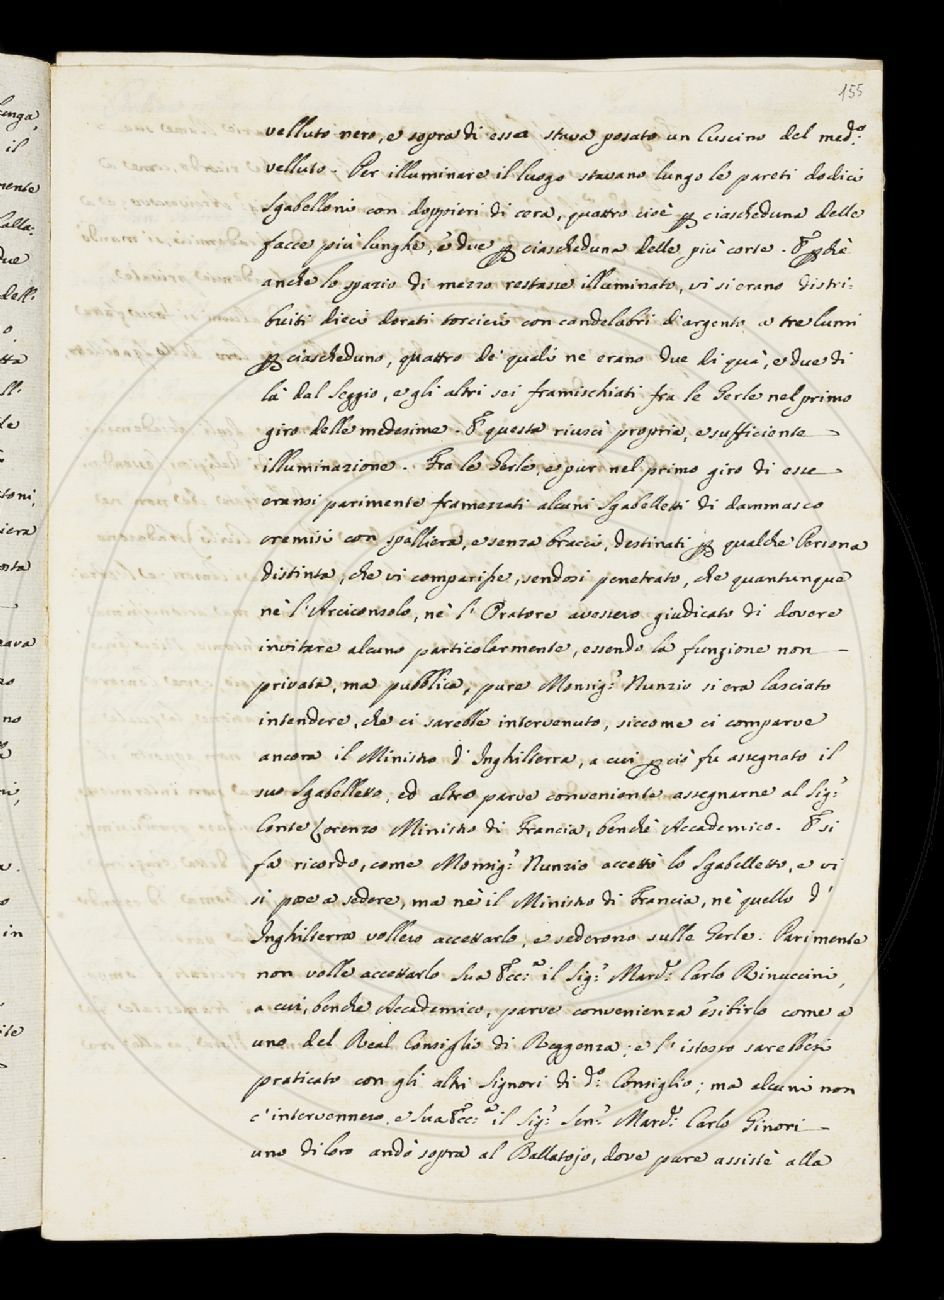 155
velluto nero, e sopra di essa stava posato un Cuscino del med.º
velluto. Per illuminare il luogo stavano lungo le pareti dodici
Sgabelloni con doppieri di cera, quattro cioè ꝑ ciascheduna delle
facce più lunghe, e due ꝑ ciascheduna delle più corte. E ꝑchè
anche lo spazio di mezzo restasse illuminato, vi si erano distri-
buiti dieci dorati torcieri con candelabri d'argento a tre lumi
ꝑ ciascheduno, quattro de' quali ne erano due di quà, e due di
là dal Seggio, e gli altri sei framischiati fra le Gerle nel primo
giro delle medesime. E questa riuscì propria, e sufficiente
illuminazione. Fra le Gerle, e pur nel primo giro di esse
eransi parimente framezzati alcuni Sgabelletti di dammasco
cremisi con spalliera, e senza bracci, destinati ꝑ qualche Persona
distinta, che vi comparisse, sendosi penetrato, che quantunque
nè l'Arciconsolo, nè l'Oratore avessero giudicato di dovere
invitare alcuno particolarmente, essendo la funzione non
privata, ma pubblica, pure Monsig.r Nunzio si era lasciato
intendere, che ci sarebbe intervenuto, siccome ci comparve
ancora il Ministro d'Inghilterra, a cui ꝑciò fu assegnato il
suo Sgabelletto, ed altro parve conveniente assegnarne al Sig.r
Conte Lorenzo Ministro di Francia, benchè Accademico. E si
fa ricordo, come Monsig.r Nunzio accettò lo Sgabelletto, e vi
si pose a sedere, ma nè il Ministro di Francia, nè quello d'
Inghilterra vollero accettarlo, e sederono sulle Gerle. Parimente
non volle accettarlo Sua Ecc.a il Sig.r March.e Carlo Rinuccini,
a cui, benchè Accademico, parve convenienza esibirlo come a
uno del Real Consiglio di Reggenza; e l'istesso sarebbesi
praticato con gli altri Signori di d.º Consiglio; ma alcuni non
c'intervennero, e Sua Ecc.a il Sig.r Sen.r March.e Carlo Ginori
uno di loro andò sopra al Ballatojo, dove pure assistè alla